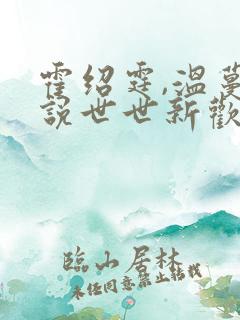 霍绍霆,温蔓
说世世新歡
臨山居林
未经同意禁止转载